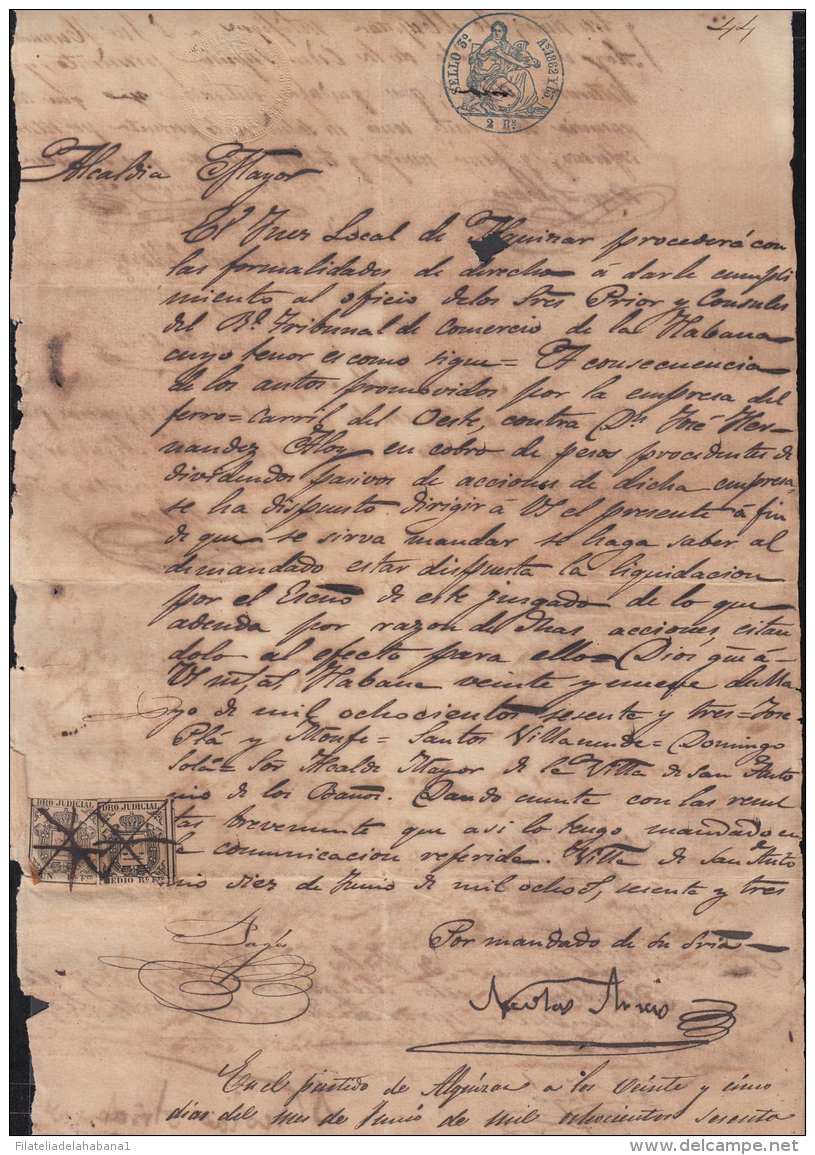 44
SELLO 3º Aˢ 1862 Y 63
2 Rˢ
Alcaldia Mayor
El Juez Local de Alquizar procederá con
las formalidades de derecho á darle cumpli
miento al oficio de los Sres Prior y Consules
del Rˡ Tribunal de Comercio de la Habana
cuyo tenor es como sigue= A consecuencia
de los autos promovidos por la empresa del
ferro=carril del Oeste, contra Dⁿ José Her-
nandez Aloy en cobro de pesos procedentes de
dividendos pasivos de acciones de dicha empresa
se ha dispuesto dirigir á VS el presente á fin
de que se sirva mandar se haga saber al
demandado estar dispuesta la liquidacion
por el Escno de este juzgado de lo que
adeuda por razon de dhas acciones, citan
dolo al efecto para ello= Dios gue á
VS ms as Habana veinte y nueve de Ma
yo de mil ochocientos sesenta y tres= Jose
Plá y Monfe= Santos Villaverde= Domingo
Solá= Sor Alcalde Mayor de la Villa de San Anto
nio de los Baños. Dando cuenta con las resul
tas brevemente que asi lo tengo mandado en
la comunicacion referida. Villa de San Anto
nio diez de Junio de mil ochos, sesenta y tres
DRO JUDICIAL
UN Rˡ Fᵗᵉ
DRO JUDICIAL
MEDIO Rˡ Fᵗᵉ
Por mandado de su Sria
Nicolas
En el partido de Alquizar a los veinte y cinco
dias del mes de Junio de mil ochocientos sesenta
Filateliadelahabana1
delcampe.net